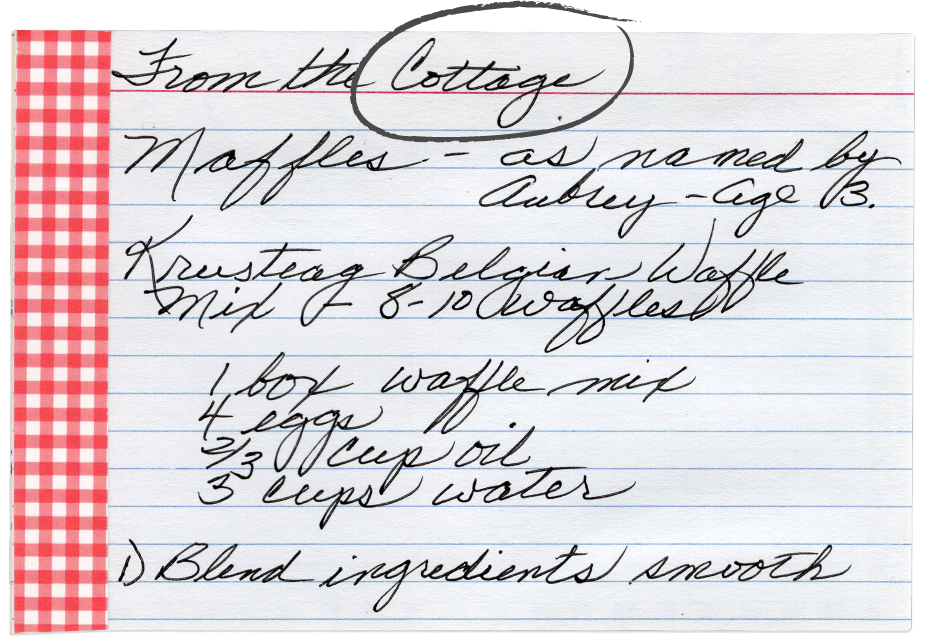 From the Cottage
Maffles - as named by
Aubrey - Age 3.
Krusteag Belgian Waffle
Mix - 8-10 waffles
1 box waffle mix
4 eggs
2/3 cup oil
3 cups water
1) Blend ingredients smooth